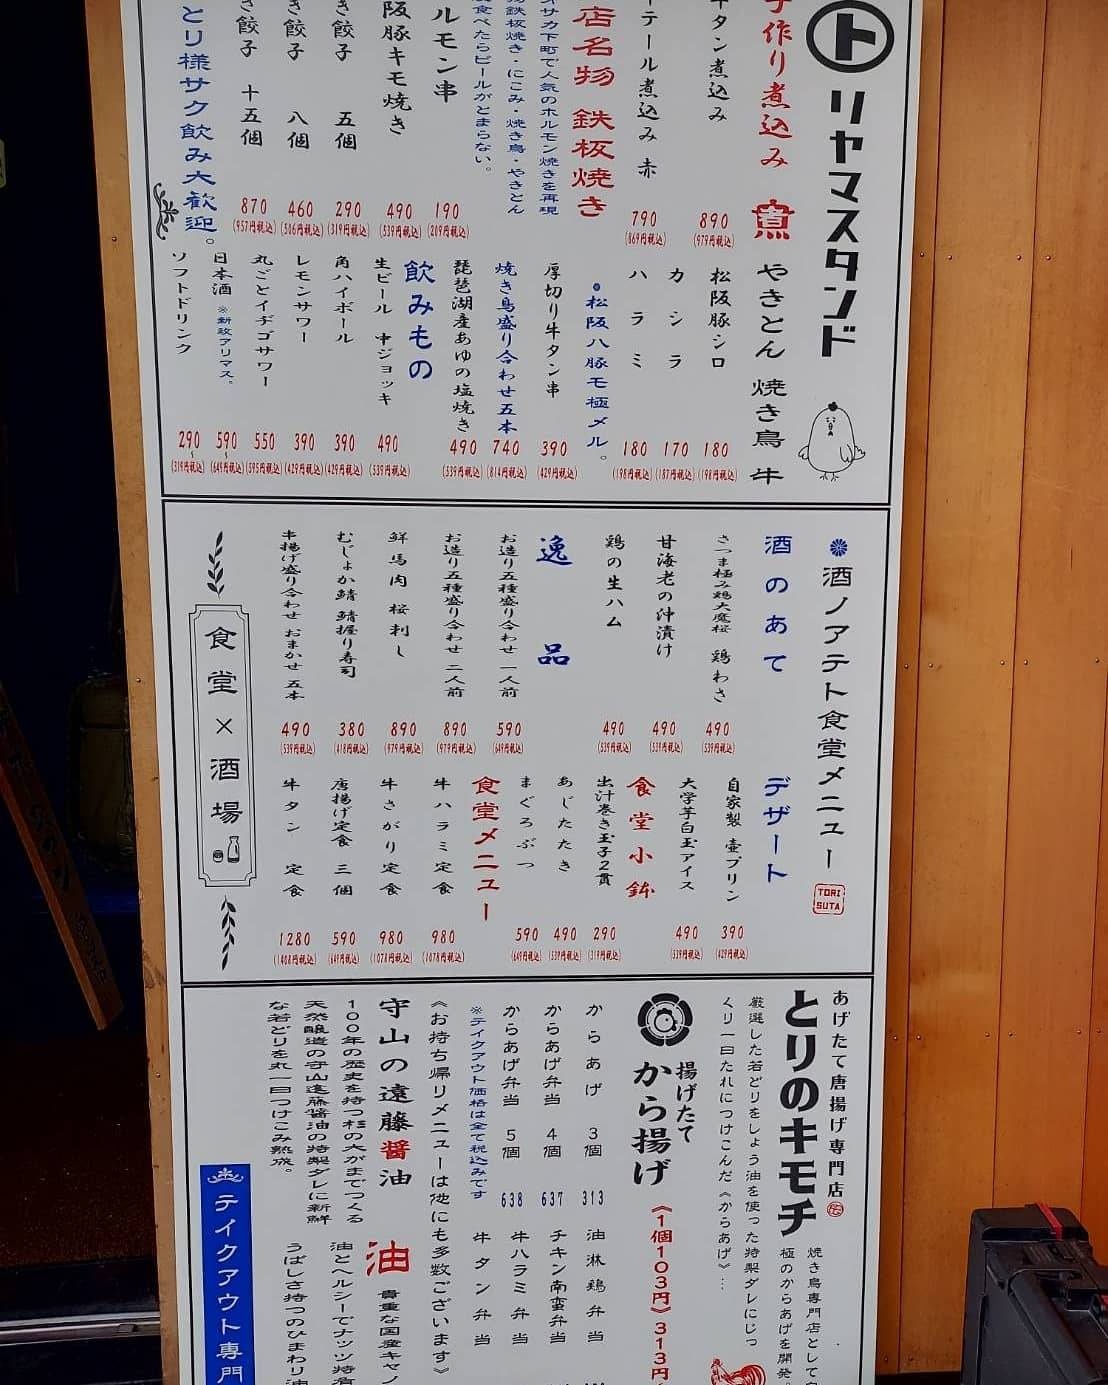 ト
リヤマスタンド
手作り煮込み 煮
牛タン煮込み
890
(979円税込)
テール煮込み 赤
790
(869円税込)
店名物 鉄板焼き
オオサカ下町で人気のホルモン焼きを再現
鉄板焼き・にこみ・焼き鳥・やきとん
食べたらビールがとまらない。
ルモン串
190
(209円税込)
阪豚キモ焼き
490
(539円税込)
き餃子 五個
290
(319円税込)
き餃子 八個
460
(506円税込)
き餃子 十五個
870
(957円税込)
とリ様サク飲み大歓迎。
やきとん 焼き鳥 牛
松阪豚シロ
180
(198円税込)
カシラ
170
(187円税込)
ハラミ
180
(198円税込)
松阪八豚モ極メル。
厚切り牛タン串
390
(429円税込)
焼き鳥盛り合わせ五本
740
(814円税込)
琵琶湖産あゆの塩焼き
490
(539円税込)
飲みもの
生ビール 中ジョッキ
490
(539円税込)
角ハイボール
390
(429円税込)
レモンサワー
390
(429円税込)
丸ごとイチゴサワー
550
(595円税込)
日本酒 ※新政アリマス。
590〜
(649円税込)
ソフトドリンク
290〜
(319円税込)
酒ノアテト食堂メニュー
TORI SUTA
酒のあて
さつま極み鶏大魔桜 鶏わさ
490
(539円税込)
甘海老の沖漬け
490
(539円税込)
鶏の生ハム
490
(539円税込)
逸品
お造り五種盛り合わせ 一人前
590
(649円税込)
お造り五種盛り合わせ 二人前
890
(979円税込)
鮮馬肉 桜刺し
890
(979円税込)
むじょか鯖 鯖握り寿司
380
(418円税込)
串揚げ盛り合わせ おまかせ 五本
490
(539円税込)
食堂×酒場
デザート
自家製 壷プリン
390
(429円税込)
大学芋白玉アイス
490
(539円税込)
食堂小鉢
出汁巻き玉子2貫
290
(319円税込)
あじたたき
490
(539円税込)
まぐろぶつ
590
(649円税込)
食堂メニュー
牛ハラミ定食
980
(1078円税込)
牛さがり定食
980
(1078円税込)
唐揚げ定食 三個
590
(649円税込)
牛タン 定食
1280
(1408円税込)
あげたて唐揚げ専門店
とりのキモチ
焼き鳥専門店として
極のからあげを開発。
厳選した若どりをしょう油を使った特製ダレにじっ
くり一日たれにつけこんだ《からあげ》…
揚げたて
から揚げ
《1個103円》313円
からあげ 3個
313
からあげ弁当 4個
637
からあげ弁当 5個
638
※テイクアウト価格は全て税込みです
油淋鶏弁当
チキン南蛮弁当
牛ハラミ弁当
牛タン弁当
《お持ち帰リメニューは他にも多数ございます》
守山の遠藤醤油
100年の歴史を持つ杉の大がまでつくる
天然醸造の守山遠藤醤油の特製ダレに新鮮
な若どりを丸一日つけこみ熟成。
油
貴重な国産キャノ
油とヘルシーでナッツ特有
うばしさ持つのひまわり油
テイクアウト専門